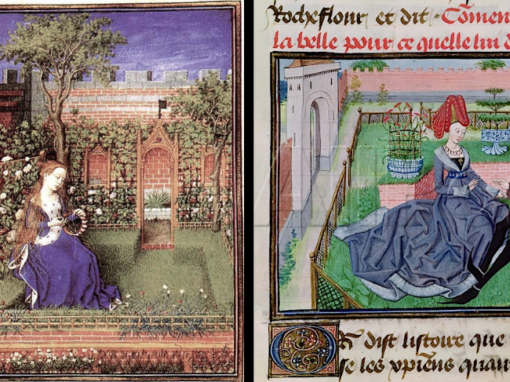 Rocheflour et dit. Cõmen
la belle pour ce quelle lui d
OR dist listoire que
se les xpiens quan